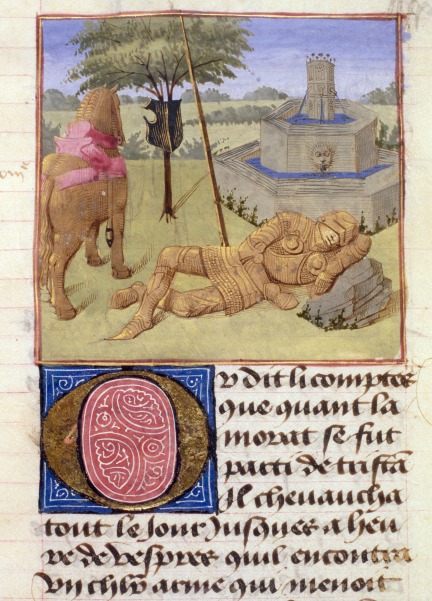 Or dit li comptes
que quant la
morat se fut
parti de tristã
Il cheuaucha
tout le Jour Jusques a heu
re de vespres quil encontra
vng chl̅r arme qui menoit